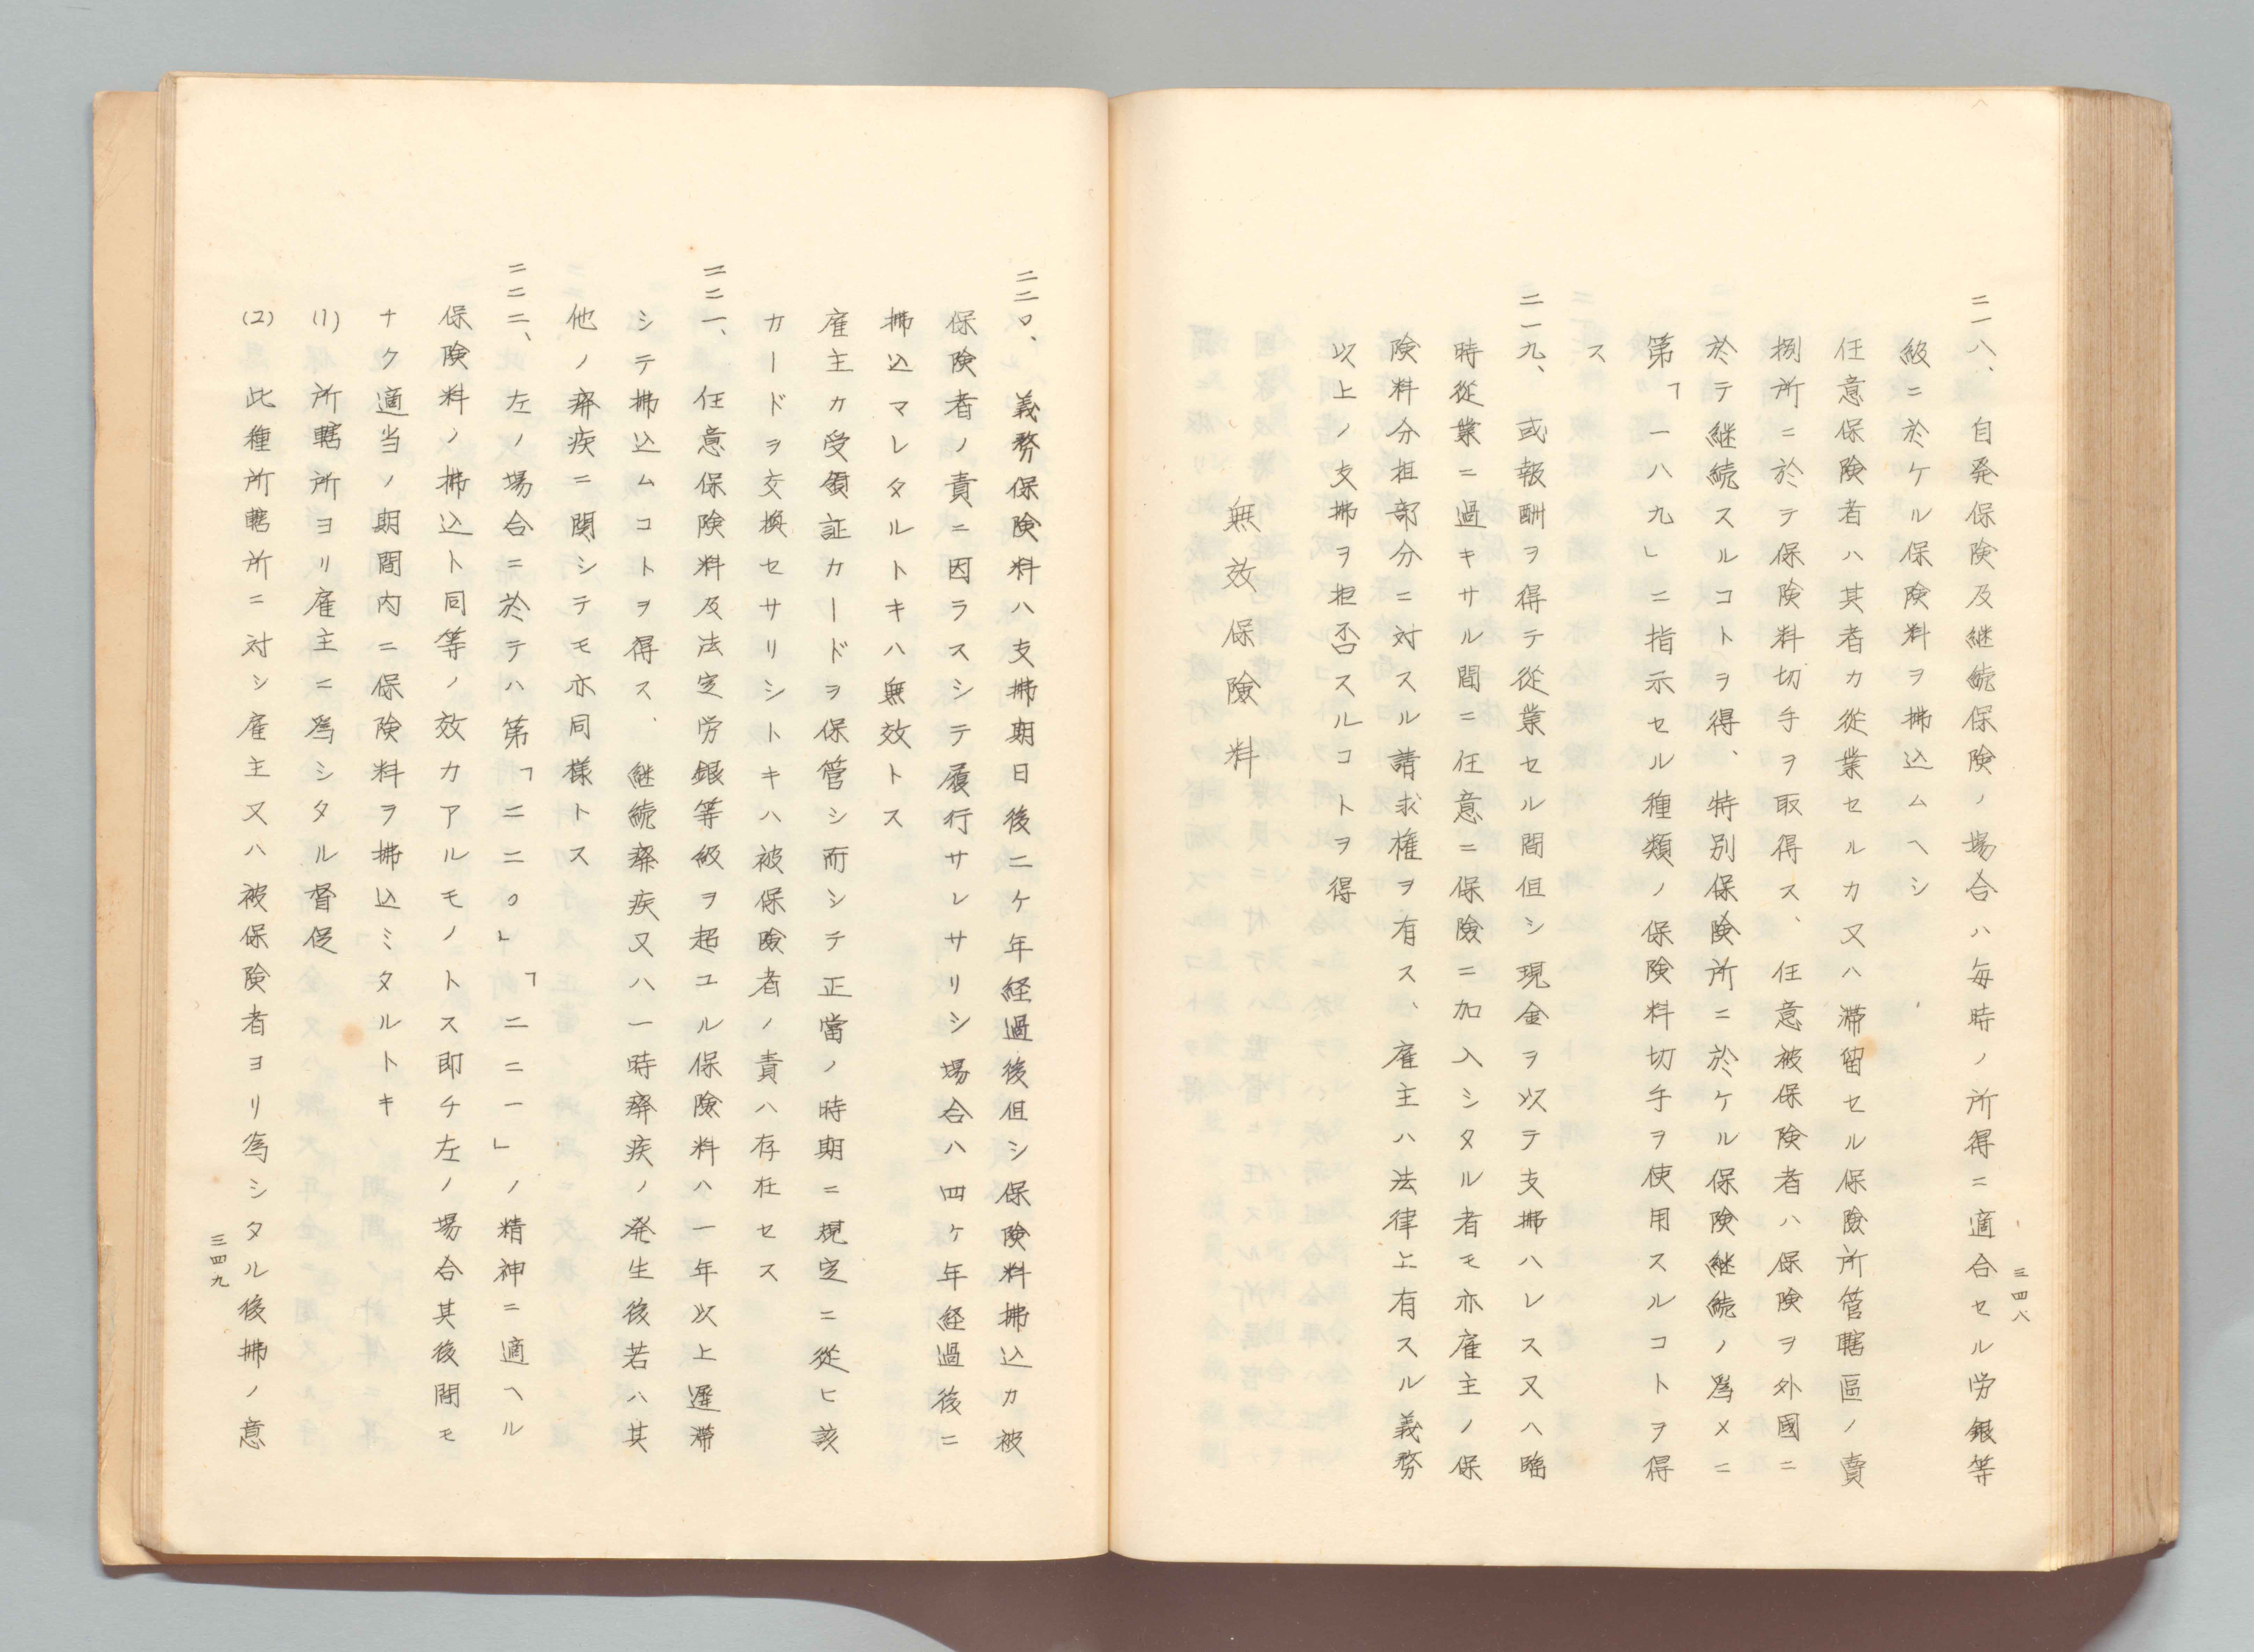 三四八
二一八、自発保険及継続保険ノ場合ハ毎時ノ所得ニ適合セル労銀等
級ニ於ケル保険料ヲ拂込ムヘシ
任意保険者ハ其者カ從業セルカ又ハ滞留セル保險所管轄區ノ賣
捌所ニ於テ保険料切手ヲ取得ス、任意被保険者ハ保険ヲ外國ニ
於テ継続スルコトヲ得、特別保険所ニ於ケル保険継続ノ爲メニ
第「一八九」ニ指示セル種類ノ保険料切手ヲ使用スルコトヲ得
ス
二一九、或報酬ヲ得テ從業セル間但シ現金ヲ以テ支拂ハレス又ハ臨
時從業ニ過キサル間ニ任意ニ保險ニ加入シタル者モ亦雇主ノ保
険料分担部分ニ対スル請求権ヲ有ス、雇主ハ法律上有スル義務
以上ノ支拂ヲ拒否スルコトヲ得
無效保險料
二二〇、義務保険料ハ支拂期日後二ケ年経過後但シ保険料拂込カ被
保険者ノ責ニ因ラスシテ履行サレサリシ場合ハ四ケ年経過後ニ
拂込マレタルトキハ無效トス
雇主カ受領証カードヲ保管シ而シテ正當ノ時期ニ規定ニ從ヒ該
カードヲ交換セサリシトキハ被保險者ノ責ハ存在セス
二二一、任意保険料及法定労銀等級ヲ超ユル保險料ハ一年以上遅滞
シテ拂込ムコトヲ得ス、継続癈疾又ハ一時癈疾ノ発生後若ハ其
他ノ癈疾ニ関シテモ亦同様トス
二二二、左ノ場合ニ於テハ第「二二〇」「二二一」ノ精神ニ適ヘル
保険料ノ拂込ト同等ノ效力アルモノトス即チ左ノ場合其後間モ
ナク適当ノ期間内ニ保険料ヲ拂込ミタルトキ
(1) 所轄所ヨリ雇主ニ爲シタル督促
(2) 此種所轄所ニ対シ雇主又ハ被保険者ヨリ爲シタル後拂ノ意
三四九